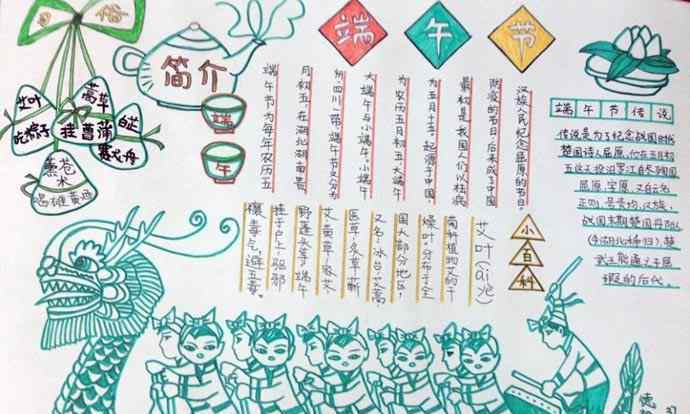 习俗
艾叶
吃粽子
蒿草
挂菖蒲
白芷
赛龙舟
熏苍
术
喝雄黄酒
简介
端
午
端午节
端午节为每年农历五
月初五,在湖北湖南贵
州、四川一带,端午节又分为
大端午与小端午。小端午
为农历五月初五,大端午
为五月十五。起源于中国,
最初是我国人们以祛病
防疫的节日,后来成了中国
汉族人民纪念屈原的节日。
小百科
艾叶(ài yè)
菊科植物艾的干
燥叶,分布于全
国大部分地区,
又名:冰台、艾蒿,
医草、灸草、蕲
野莲头等,端午
挂于户上,驱邪
禳毒气,避五毒。
端午节传说
传说是为了纪念战国时代
楚国诗人屈原,他在五月初
五这天投汨罗江自尽殉国
屈原,字原,又自云名
正则,号灵均,汉族,
战国末期楚国丹阳
(今湖北秭归),楚
武王熊通之子屈
瑕的后代。